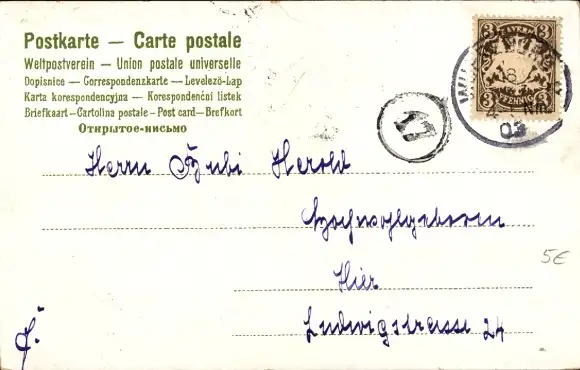 Postkarte — Carte postale
Weltpostverein — Union postale universelle
Dopisnice — Correspondenzkarte — Levelező-Lap
Karta korespondencyjna — Korespondenční listek
Briefkaart - Cartolina postale - Post card - Brefkort
Открытое-письмо
3 BAYERN 3
3 PFENNIG 3
18
03
17
Herrn Herold
Hochwohlgeboren
Hier
Ludwigstrasse 24
5€